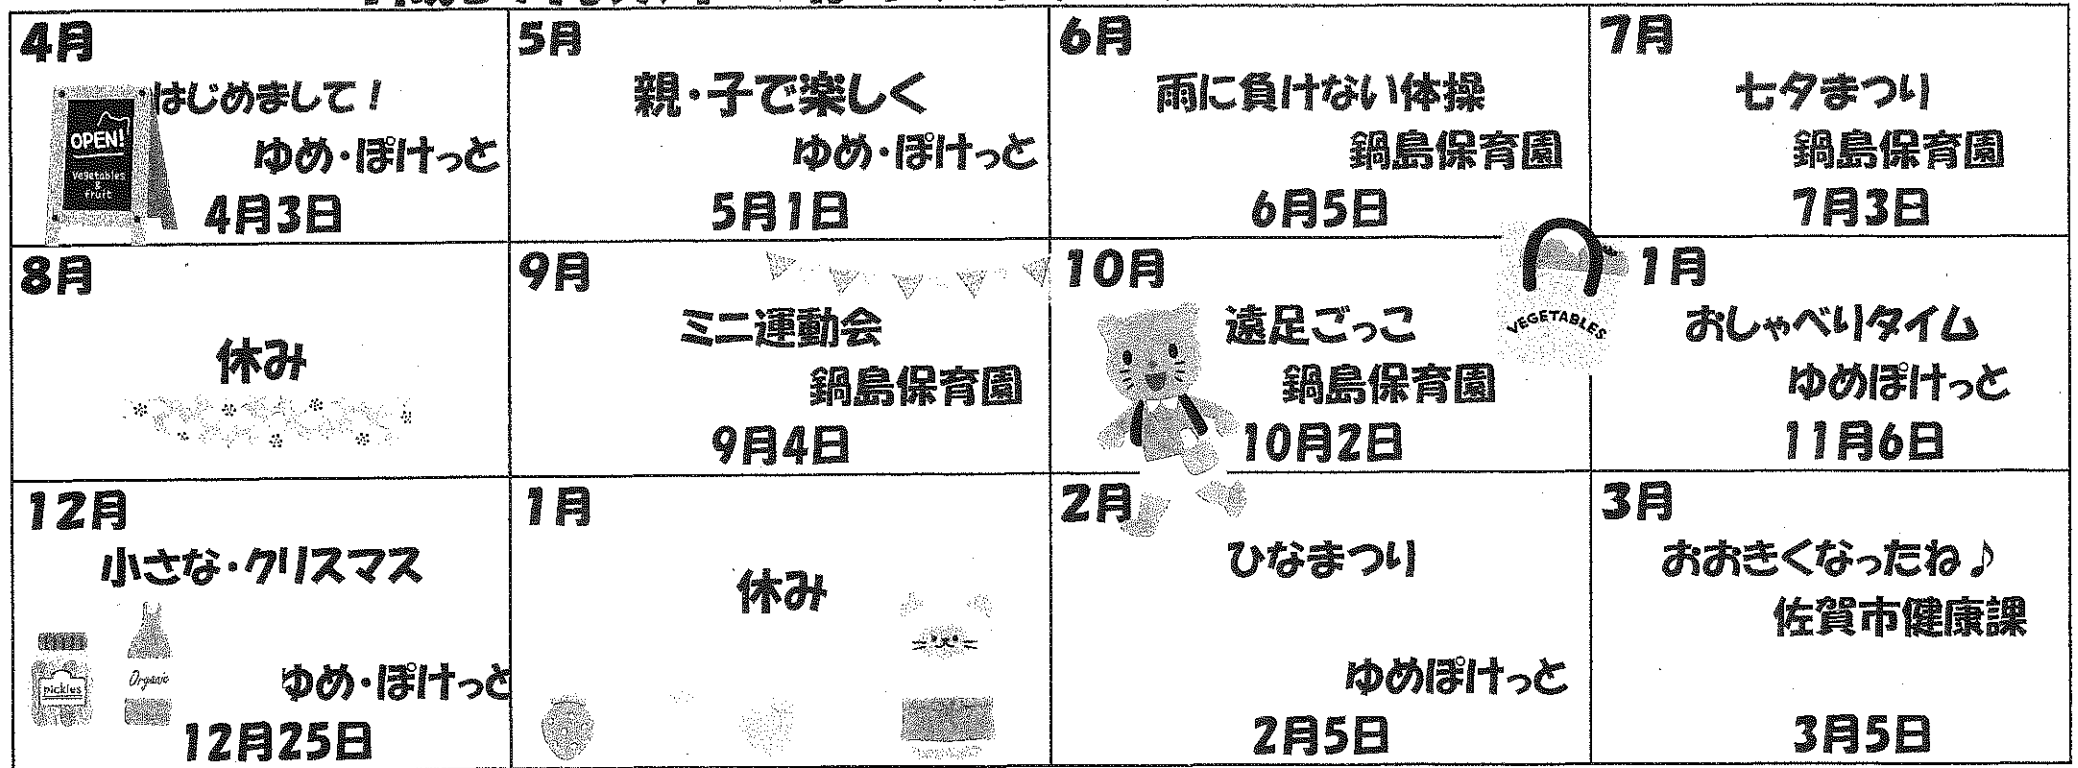 4月
はじめまして！
ゆめ・ぽけっと
4月3日
OPEN!
vegetables
&
fruit
5月
親・子で楽しく
ゆめ・ぽけっと
5月1日
6月
雨に負けない体操
鍋島保育園
6月5日
7月
七夕まつり
鍋島保育園
7月3日
8月
休み
9月
ミニ運動会
鍋島保育園
9月4日
10月
遠足ごっこ
鍋島保育園
10月2日
VEGETABLES
1月
おしゃべりタイム
ゆめぽけっと
11月6日
12月
小さな・クリスマス
pickles
Organic
ゆめ・ぽけっと
12月25日
1月
休み
2月
ひなまつり
ゆめぽけっと
2月5日
3月
おおきくなったね♪
佐賀市健康課
3月5日